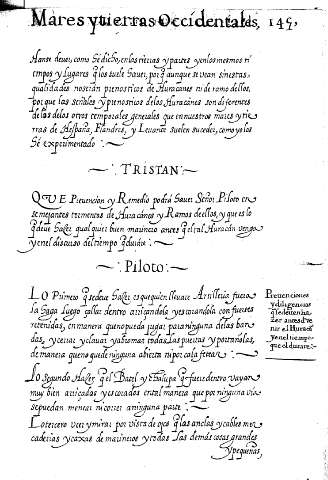 Mares y tierras Occidentales, 145,
Hanse de ver, como Se dicho, en los tierras y partes y en los mesmos ti
empos y lugares q̃ los suele Sauer, porq̃ aunque se vean siniestras
qualidades no seran pronosticos de Huracanes ni de ramo dellos,
por que las señales y pronosticos de los Huracanes son diferentes
de las de los otros temporales generales que en nuestros mares y tie
rras de Hespaña, Flandres, y Leuante suelen suceder, como yo los
Sé experimentado
TRISTAN
QVE Preuencion y Remedio podra Sauer Señor Piloto en
semejantes tormentas de Huracanes y Ramos de ellos, y que es lo
q̃ deue Sazer qualquier buen marinero antes q̃ el tal Huracan venga
y en el discurso del tiempo q̃ durare
Piloto
LO Primero q̃ se deue Sazer es que quien lleuare Artilleria fuera
la Saga luego callar dentro atricandola y escorandola con fuertes
retenidas, en manera que no pueda jugar para ninguna de las ban
das, y cerrar y clauar y abromar todas las puertas y portañolas,
de manera que no quede ninguna abierta ni por calafetear
Preuenciones
y diligencias
que se deuen ha
zer antes de ve
nir el Huracã
y en el tiempo
que el durare
Lo segundo Hazer q̃ el Batel y Chalupa q̃ fuere dentro vayan
muy bien atricadas y escorados en tal manera que por ninguna via
se puedan menear ni correr a ninguna parte
Lo tercero ver y mirar por vista de ojos q̃ las anclas y cables mer
caderias y caxas de marineros y todas las demas cosas grandes
y pequeñas,